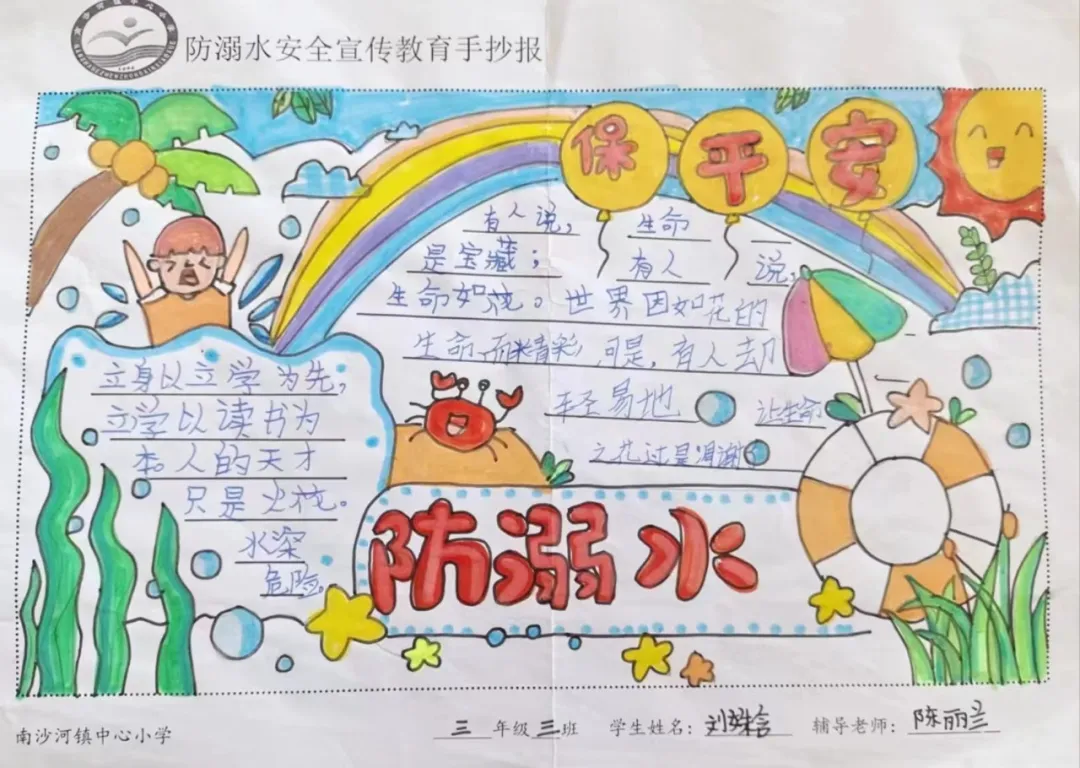 防溺水安全宣传教育手抄报
保平安
有人说, 生命
是宝藏; 有人 说,
生命如花。世界因如花的
生命而精彩, 可是, 有人却
轻易地 让生命
之花过早凋谢。
立身以立学为先,
立学以读书为
本。人的天才
只是火花。
水深
危险。
防溺水
南沙河镇中心小学 三年级三班 学生姓名: 刘姝含 辅导老师: 陈丽兰